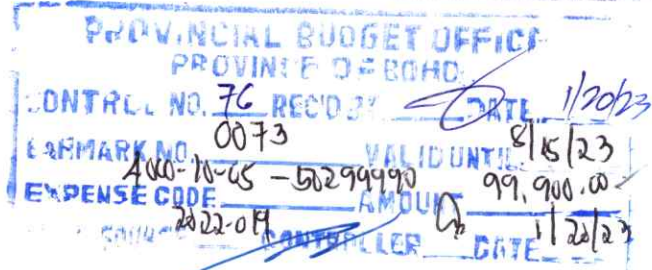 PROVINCIAL BUDGET OFFICE
PROVINCE OF BOHO
CONTROL NO. 76 REC'D BY DATE 1/20/23
EARMARK NO. 0073 VALID UNTIL 8/15/23
EXPENSE CODE -50299990 AMOUNT 99,900.00
SOURCE 2022-019 CONTROLLER DATE 1/20/23